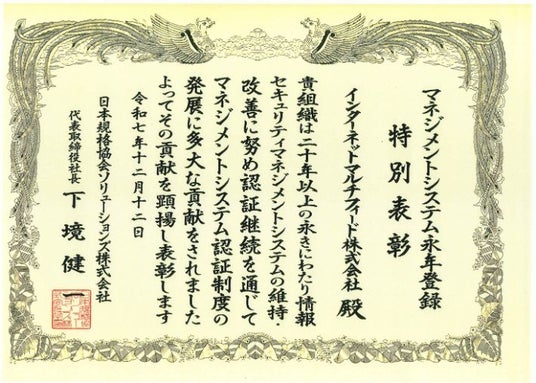 マネジメントシステム永年登録
特別表彰
インターネットマルチフィード株式会社 殿
貴組織は二十年以上の永きにわたり情報
セキュリティマネジメントシステムの維持・
改善に努め認証継続を通じて
マネジメントシステム認証制度の
発展に多大な貢献をされました
よってその貢献を顕揚し表彰します
令和七年十二月十二日
日本規格協会ソリューションズ株式会社
代表取締役社長 下境健一